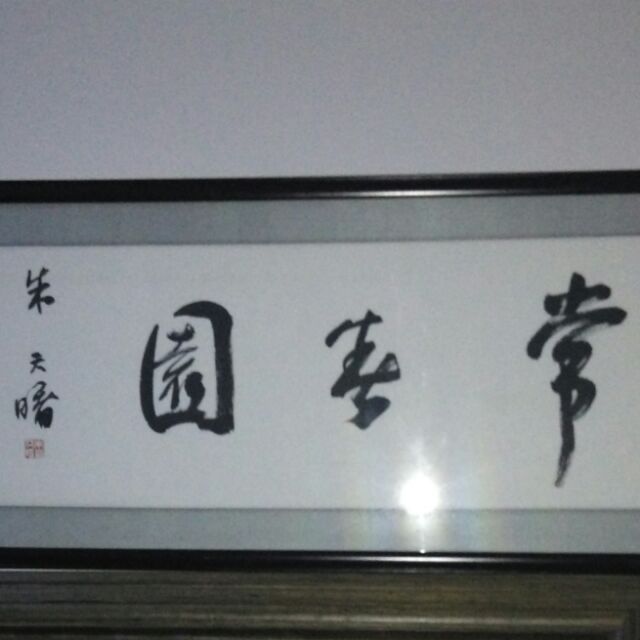 常春園
朱天曙